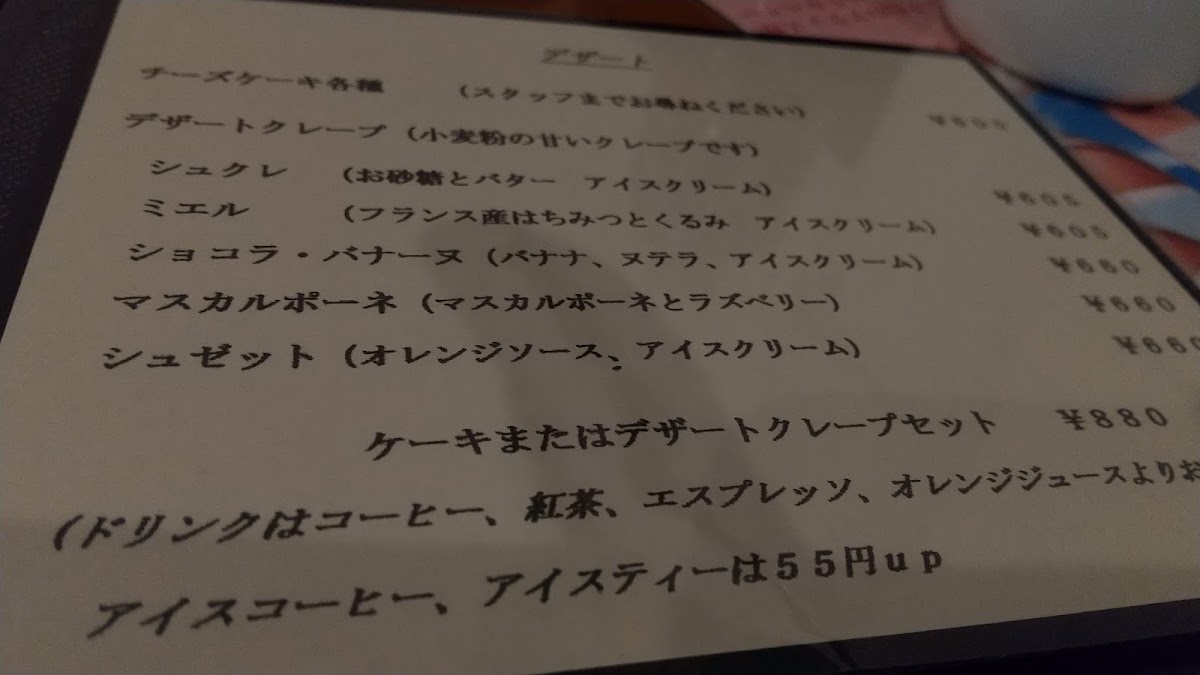 デザート
チーズケーキ各種 (スタッフまでお尋ねください) ¥605
デザートクレープ (小麦粉の甘いクレープです)
シュクレ (お砂糖とバター アイスクリーム) ¥605
ミエル (フランス産はちみつとくるみ アイスクリーム) ¥605
ショコラ・バナーヌ (バナナ、ヌテラ、アイスクリーム) ¥660
マスカルポーネ (マスカルポーネとラズベリー) ¥660
シュゼット (オレンジソース、アイスクリーム) ¥660
ケーキまたはデザートクレープセット ¥880
(ドリンクはコーヒー、紅茶、エスプレッソ、オレンジジュースよりお
アイスコーヒー、アイスティーは55円up